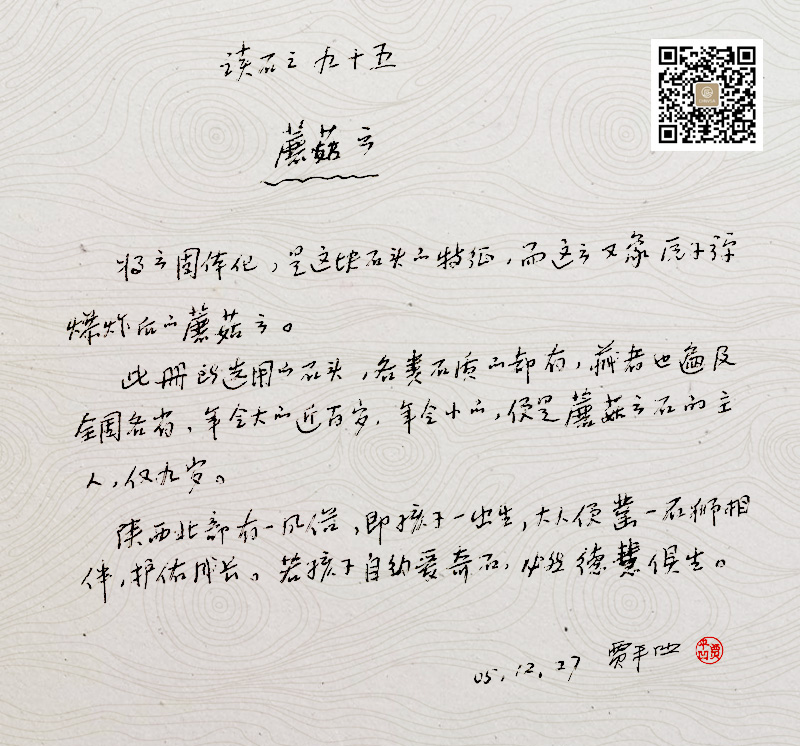 读石之九十五
蘑菇云
将云固体化，是这块石头的特征，而这云又象原子弹
爆炸后的蘑菇云。
此册所选用的石头，各类石质的都有，藏者也遍及
全国各省，年令大的近百岁，年令小的，便是蘑菇云石的主
人，仅九岁。
陕西北部有一风俗，即孩子一出生，大人便凿一石狮相
伴，护佑成长。若孩子自幼爱奇石，必然德慧俱生。
05.12.27 贾平凹
平凹
贾